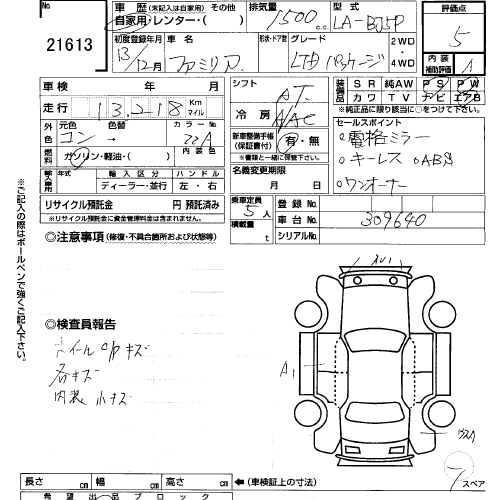 No 21613
車歴 (未記入は自家用) その他
自家用・レンター・( )
排気量 1500 cc
型式 LA-BJ5P
評価点 5
初度登録年月 13/12月
車名 ファミリア
形状・ドア数
グレード LTD パッケージ
2WD・4WD
内装補助評価 A
車検 年 月
シフト AT
装備品 SR 純AW PS PW
カワ TV ナビ エアB
※純正品に限り該当に○をつけて下さい
走行 113,218 Km マイル
冷房 AAC
外色 元色 コン 色替 カラーNo 22A
内装色
燃料 ガソリン・軽油・( )
新車整備手帳(保証書付) 有・無
※書類と一緒に保管して下さい
セールスポイント
○電格ミラー
○キーレス ○ABS
○ワンオーナー
輸入車用 年式 輸入区分 ハンドル
ディーラー・並行 左・右
名義変更期限
月 日
リサイクル預託金 円 預託済み
※リサイクル預託金に資金管理料金は含まれません。
乗車定員 5人
積載量 t
登録No
車台No 309640
シリアルNo
◎注意事項 (修復・不具合箇所および状態等)
※ご記入の際はボールペンで強くご記入下さい。
◎検査員報告
ホイールcapキズ
各キズ
内装 小キズ
A1
スペア
長さ cm 幅 cm 高さ cm ←(車検証上の寸法)
希望出品ブロック